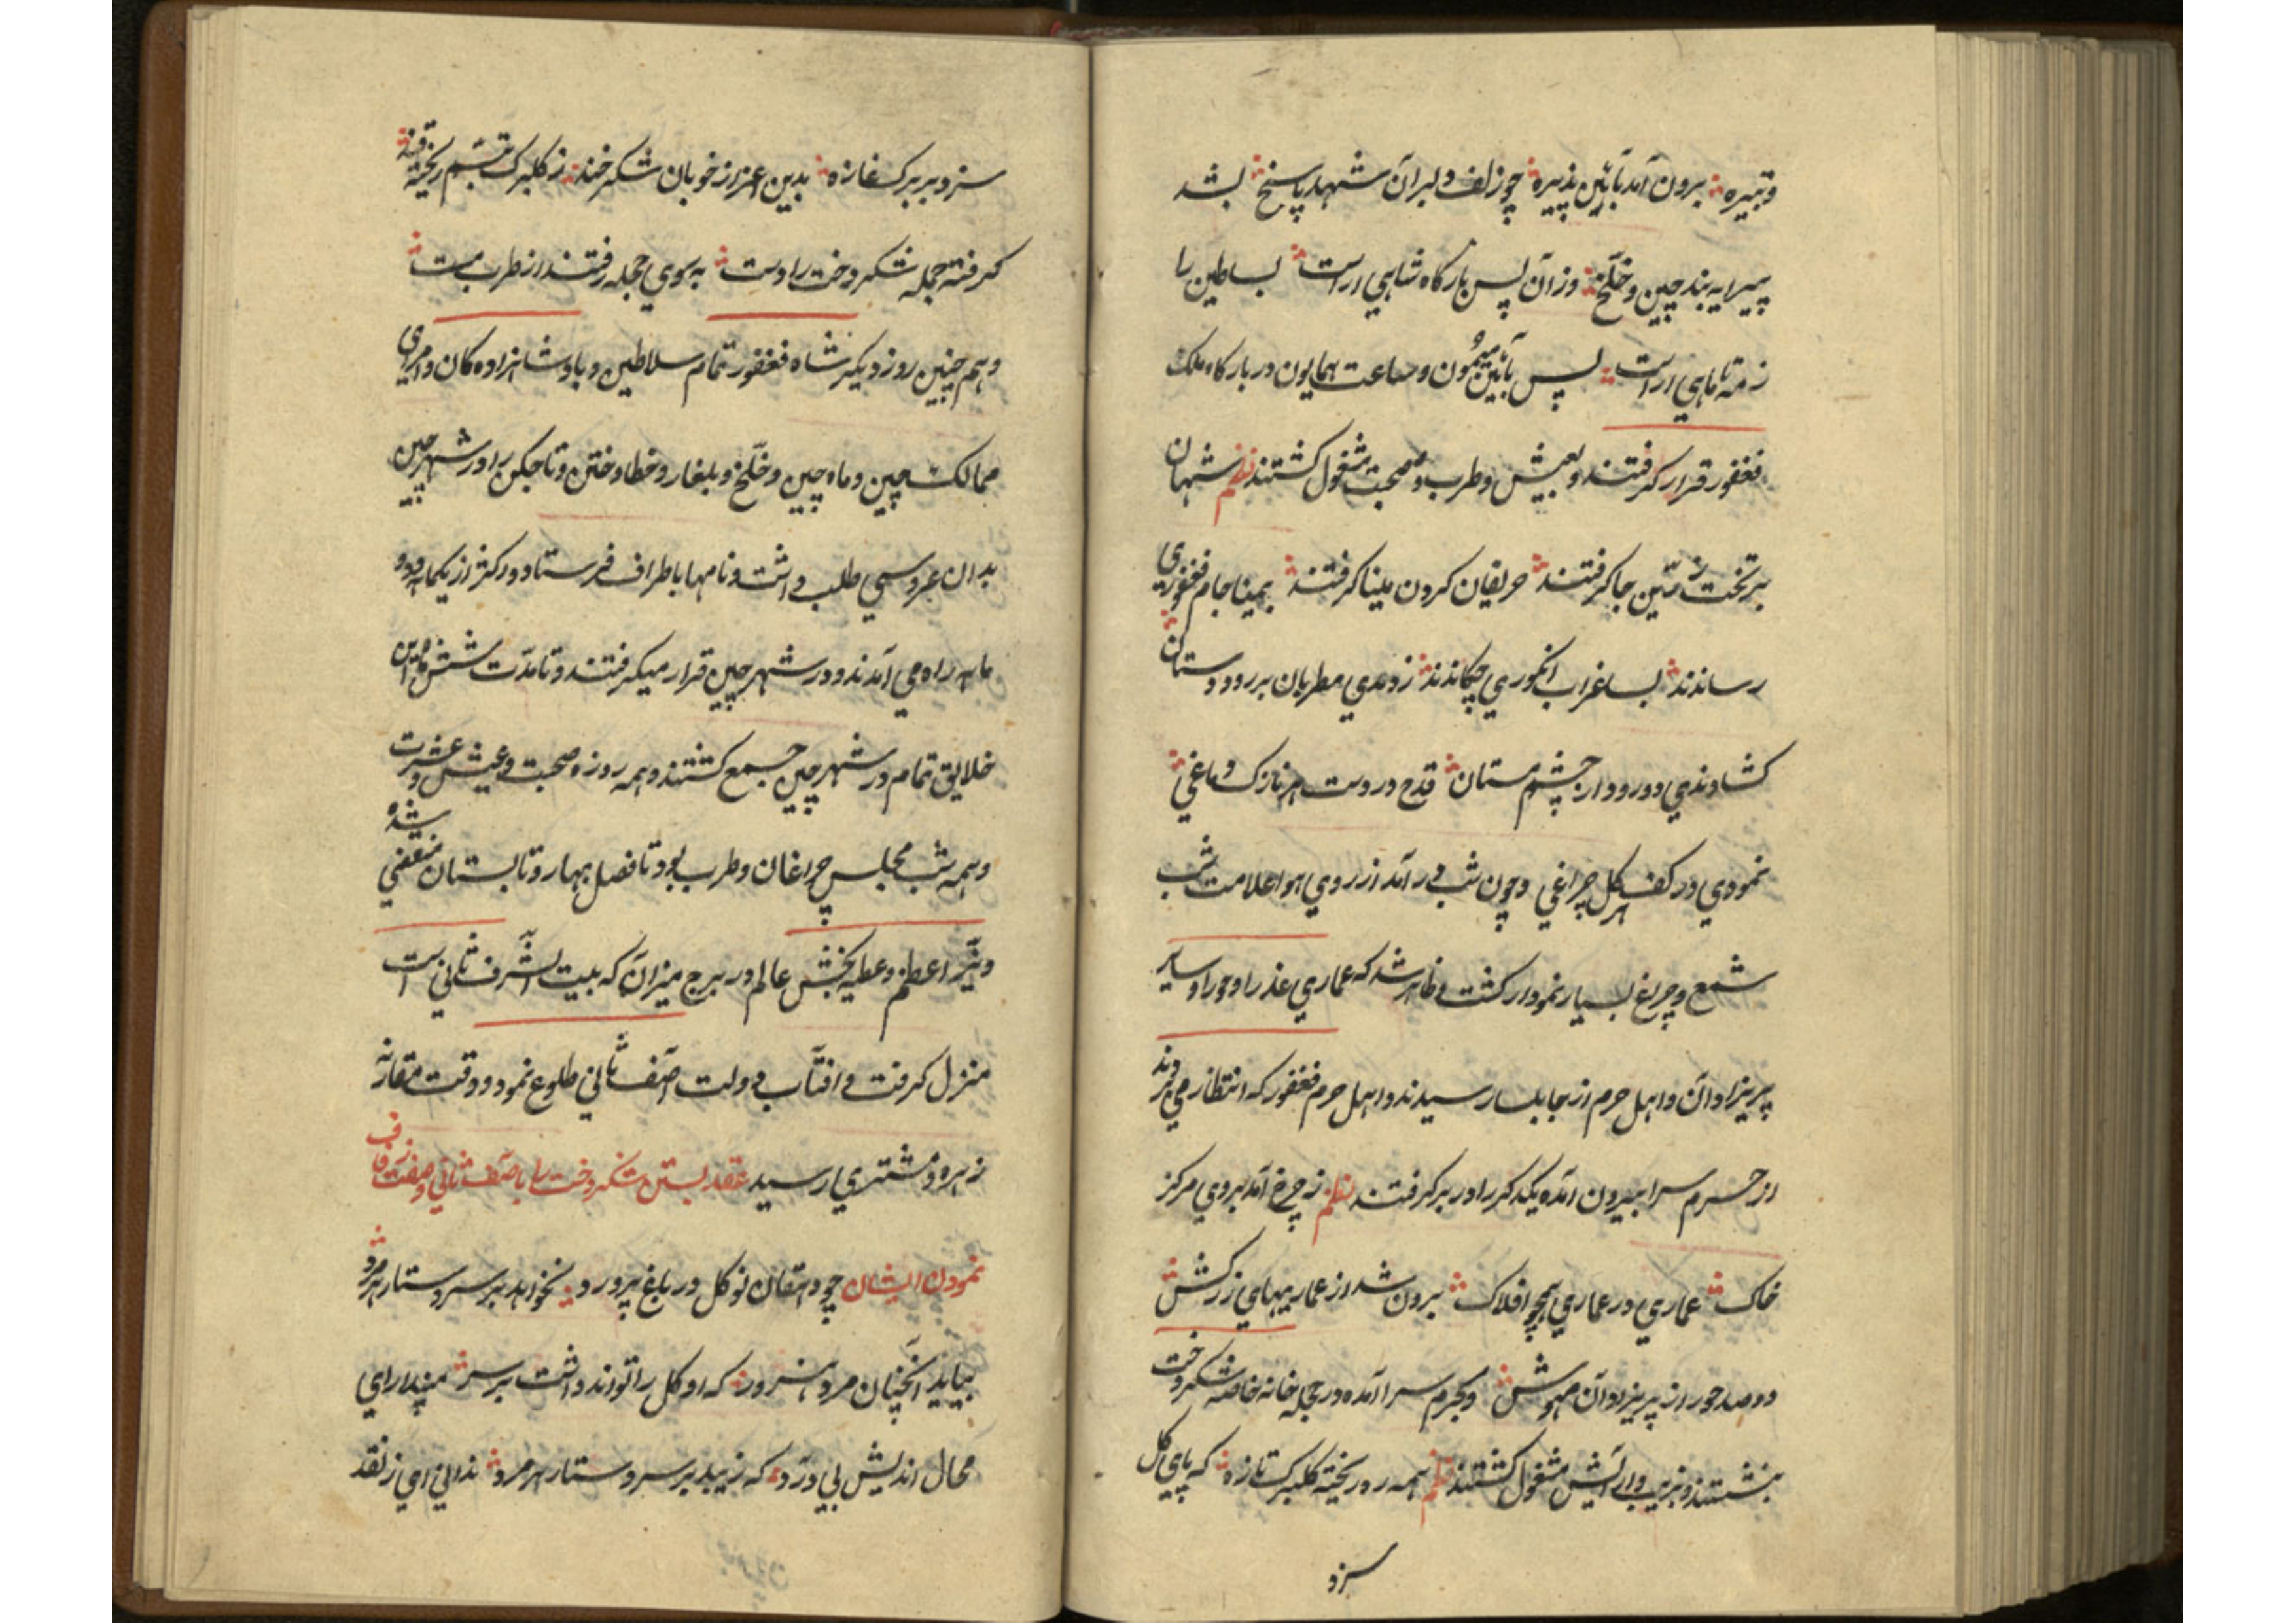 وتبیره برون آمد بآئین پذیره چو زلف دلبران شهد پاسخ بشد
پیرایه بند چین و خلّخ وزان پس بارکاه شاهی اراست بساطین را
ز مه تا ماهی اراست پس بآئین میمون و ساعت همایون در بارکاه ملک
فغفور قرار کرفتند و بعیش و طرب و صحبت مشغول کشتند نظم شهان
بر تخت زرّین جا کرفتند حریفان کردن مینا کرفتند بمینا جام فغفوری
رساندند بساغر اب انکوری چکاندند زدندی مطربان بر رود دستان
کشادندی دو رود از چشم مستان قدح در دست هر نازک دماغی
نمودی در کف هر کل چراغی و چون شب در آمد از روی هوا علامت شب
شمع و چراغ بسیار نمودار کشت و ظاهر شد که عماری عذرا و حورا و سایر
پریزادان و اهل حرم از جابلسا رسیدند و اهل حرم فغفور که انتظار می بردند
از حرم سرا بیرون آمده یکدیکر را در بر کرفتند نظم ز چرخ آمد بروی مرکز
خاک عماری در عماری همچو افلاک برون شد از عماریهای زرکش
دو صد حور از پریزادان مهوش و بحرم سرا آمده در حجله خانه خاصه شکر دخت
بنشستند و بزیب و آرایش مشغول کشتند نظم همه ره ریخته کلبرک تازه که پای کل
سزد
سزد بر برک غازه بدین اعزاز خوبان شکر خند ز کلبرک تبسّم ریخته قند
کرفته جمله شکر دخت را دست به سوی حجله رفتند از طرب مست
و هم چنین روز دیکر شاه فغفور تمام سلاطین و پادشاهزاده کان و امرای
ممالک چین و ماه چین و خلّخ و بلغار و خطا و ختن و تاجکن را در شهر چین
بدان عروسی طلب داشت و نامها باطراف فرستاد و در کمتر از یکماهه و دو
ماهه راه می آمدند و در شهر چین قرار میکرفتند و تا مدّت شش ماه این
خلایق تمام در شهر چین جمع کشتند و همه روزه صحبت و عیش و عشرت
و همه شب مجلس چراغان و طرب بود تا فصل بهار و تابستان منقضی شده
و نیّر اعظم و عطیه بخش عالم در برج میزان که بیت الشّرف ثانی است
منزل کرفت و افتاب دولت آصف ثانی طلوع نمود و وقت مقارنه
زهره و مشتری رسید عقد بستن شکر دخت را با آصف ثانی و صفت زفاف
نمودن ایشان چو دهقان نو کل در باغ پرورد نخواهد بر سر دستار هر مرد
بیاید آنچنان مرد هنرور که او کل را تواند داشت بر سر مپندار ای
محال اندیش بی درد که زیبد بر سر دستار هر مرد ندانی ای ز نقد